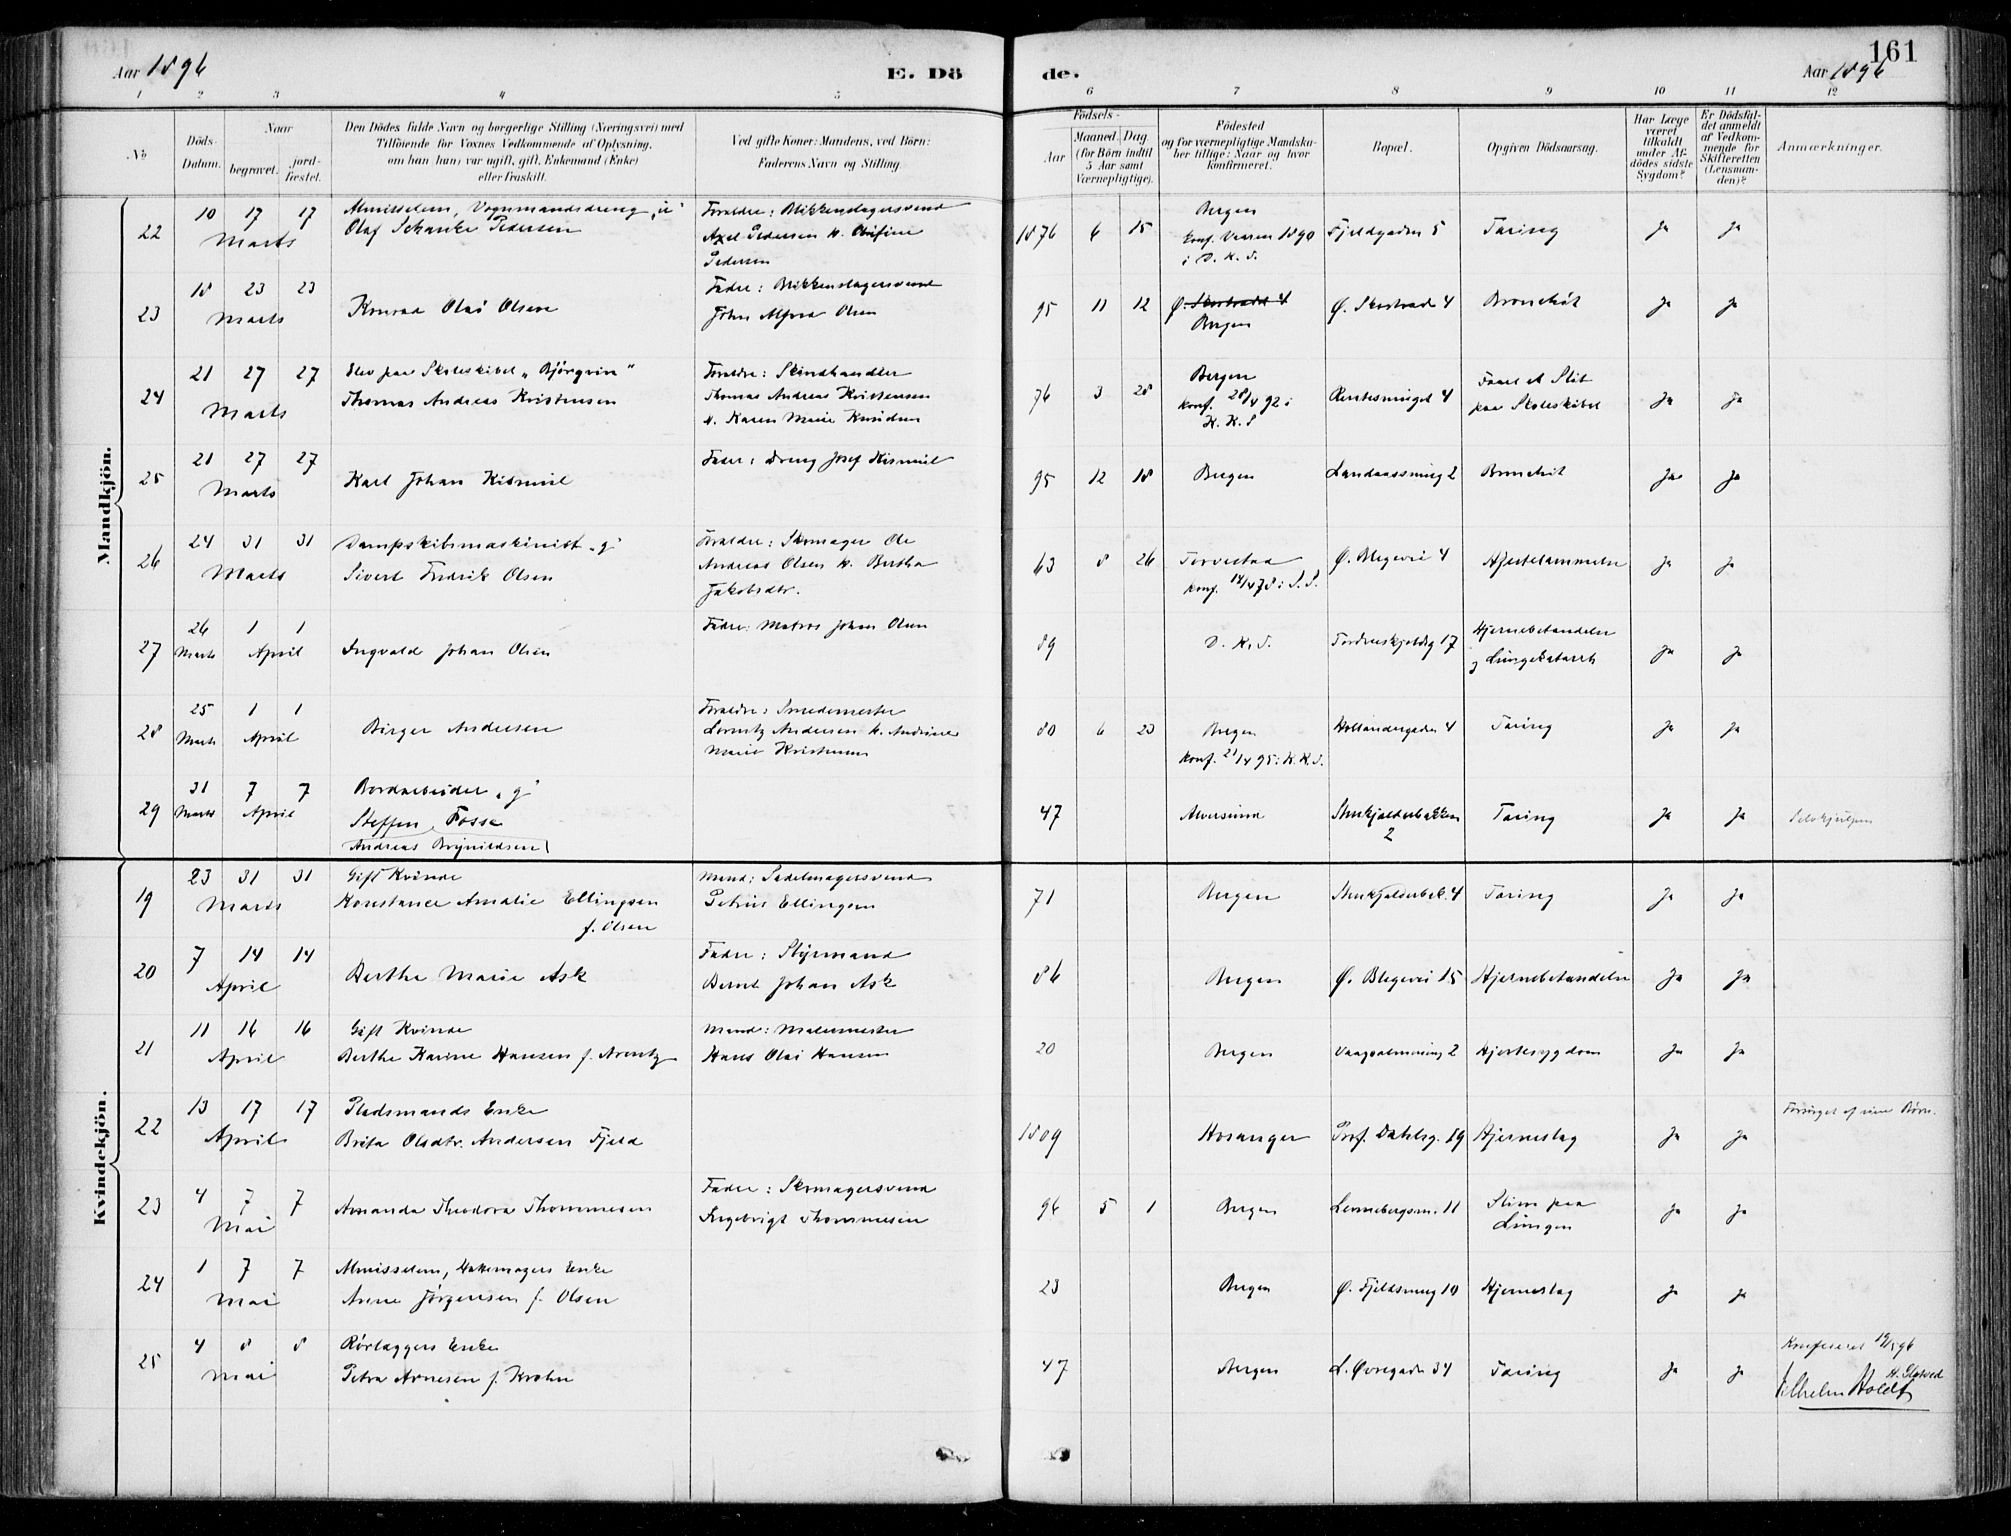 161
Aar 1896 E. Dö
de. Aar 1896
1 2 3 4 5 6 7 8 9 10 11 12
No
Döds-Datum.
Naar
begravet.
jord-fæstet.
Den Dödes fulde Navn og borgerlige Stilling (Næringsvei) med
Tilföiende for Voxnes Vedkommende af Oplysning,
om han (hun) var ugift, gift, Enkemand (Enke)
eller fraskilt.
Ved gifte Koner: Mandens, ved Börn:
Faderens Navn og Stilling.
Födsels-
Aar
Maaned.
Dag.
(for Börn indtil
5 Aar samt
Værnepligtige).
Födested
og for værnepligtige Mandsku-
her tillige: Naar og hvor
konfirmeret.
Bopæl.
Opgiven Dödsaarsag.
Har Læge
været
tilkaldt
under Af-
dödes sidste
Sygdom?
Er Dödsfal-
det anmeldt
af Vedkom-
mende for
Skifteretten
(Lensman-
den)?
Anmærkninger.
Mandkjön.
22 10 17 17 Marts
Almisselem, Vognmandsdreng, "u"
Olaf Schanke Pedersen
Foraldre: Blikkenslagersvend
Axel Pedersen
Pedersen
1876 6 15
Bergen
konf. Vaaren 1890
i D. K. S.
Fjeldgaden 5 Tæring Ja Ja
23 18 23 23 Marts
Konrad Olai Olsen
Fader: Blikkenslagersvend
Johan Alfred Olsen
95 11 12
Bergen
Ø. Skostrædet 4 Bronchit Ja Ja
24 21 27 27 Marts
Elev paa Skoleskibet "Bjørgvin"
Thomas Andreas Kristensen
Foraldre: Skindhandler
Thomas Andreas Kristensen
o. Karen Marie Knudsen
76 3 28
Bergen
konf. 28/4 92 i
K. K. S
4
paa Skoleskibet
Ja Ja
25 21 27 27 Marts
Karl Johan Kismul
Fader: Dreng Josef Kismul
95 12 18 Bergen 2 Bronchit Ja Ja
26 24 31 31 Marts
Dampskibsmaskinist "g"
Sivert Fredrik Olsen
Foraldre: Skomager Ole
Andreas Olsen o. Bertha
Jakobsdtr.
63 8 26
Torvestad
konf. 14/4 78 i S. S.
Ø. Blegevei 4 Hjertelammelse Ja Ja
27 26 Marts 1 1 April
Ingvald Johan Olsen
Fader: Matros Johan Olsen
89 D. K. S.
17
Hjernebetændelse
og Lungekatarrh
Ja Ja
28 25 Marts 1 1 April
Birger Andersen
Foraldre: Smedemester
Lorentz Andersen o. Andrine
Marie Kristensen
80 6 23
Bergen
konf. 21/4 95 i K. K. S.
Hollændergaden 4 Tæring Ja Ja
29 31 Marts 7 7 April
Bordarbeider "g"
Steffen Fosse
Andreas Brynildsen
47 Alversund
Stenkjælderbakken
2
Tæring Ja Ja Selvhjulpen
Kvindekjön.
19 23 31 31 Marts
Gift Kvinde
Konstance Amalie Ellingsen
f. Olsen
Mand: Sadelmagersvend
Petrus Ellingsen
71 Bergen Stenkjælderbak. 4 Tæring Ja Ja
20 7 14 14 April
Berthe Marie Ask
Fader: Styrmand
Bernt Johan Ask
86 Bergen Ø. Blegevei 15 Hjernebetændelse Ja Ja
21 11 16 16 April
Gift Kvinde
Berthe Karine Hansen f. Arentz
Mand: Malermester
Hans Olai Hansen
20 Bergen Vaagsalmening 2 Hjertesygdom Ja Ja
22 13 17 17 April
Pladsmands Enke
Brita Olsdtr. Andersen Fjeld
1809 Hosanger Prof. Dahlsg. 19 Hjerneslag Ja Ja
Forsørget af sine Børn.
23 4 7 7 Mai
Amanda Theodora Thommesen
Fader: Skomagersvend
Ingebrigt Thommesen
96 5 1 Bergen 11
Slim paa
Lungen
Ja Ja
24 1 7 7 Mai
Almisselem, Hattemagers Enke
Anne Jørgensen f. Olsen
23 Bergen Ø. Fjeldsmug 10 Hjerneslag Ja Ja
25 4 8 8 Mai
Rørlæggers Enke
Petra Arnesen f. Krohn
47 Bergen L. Øvregaden 34 Tæring Ja Ja
Konfereret 19/5 96
Vilhelm Holdt